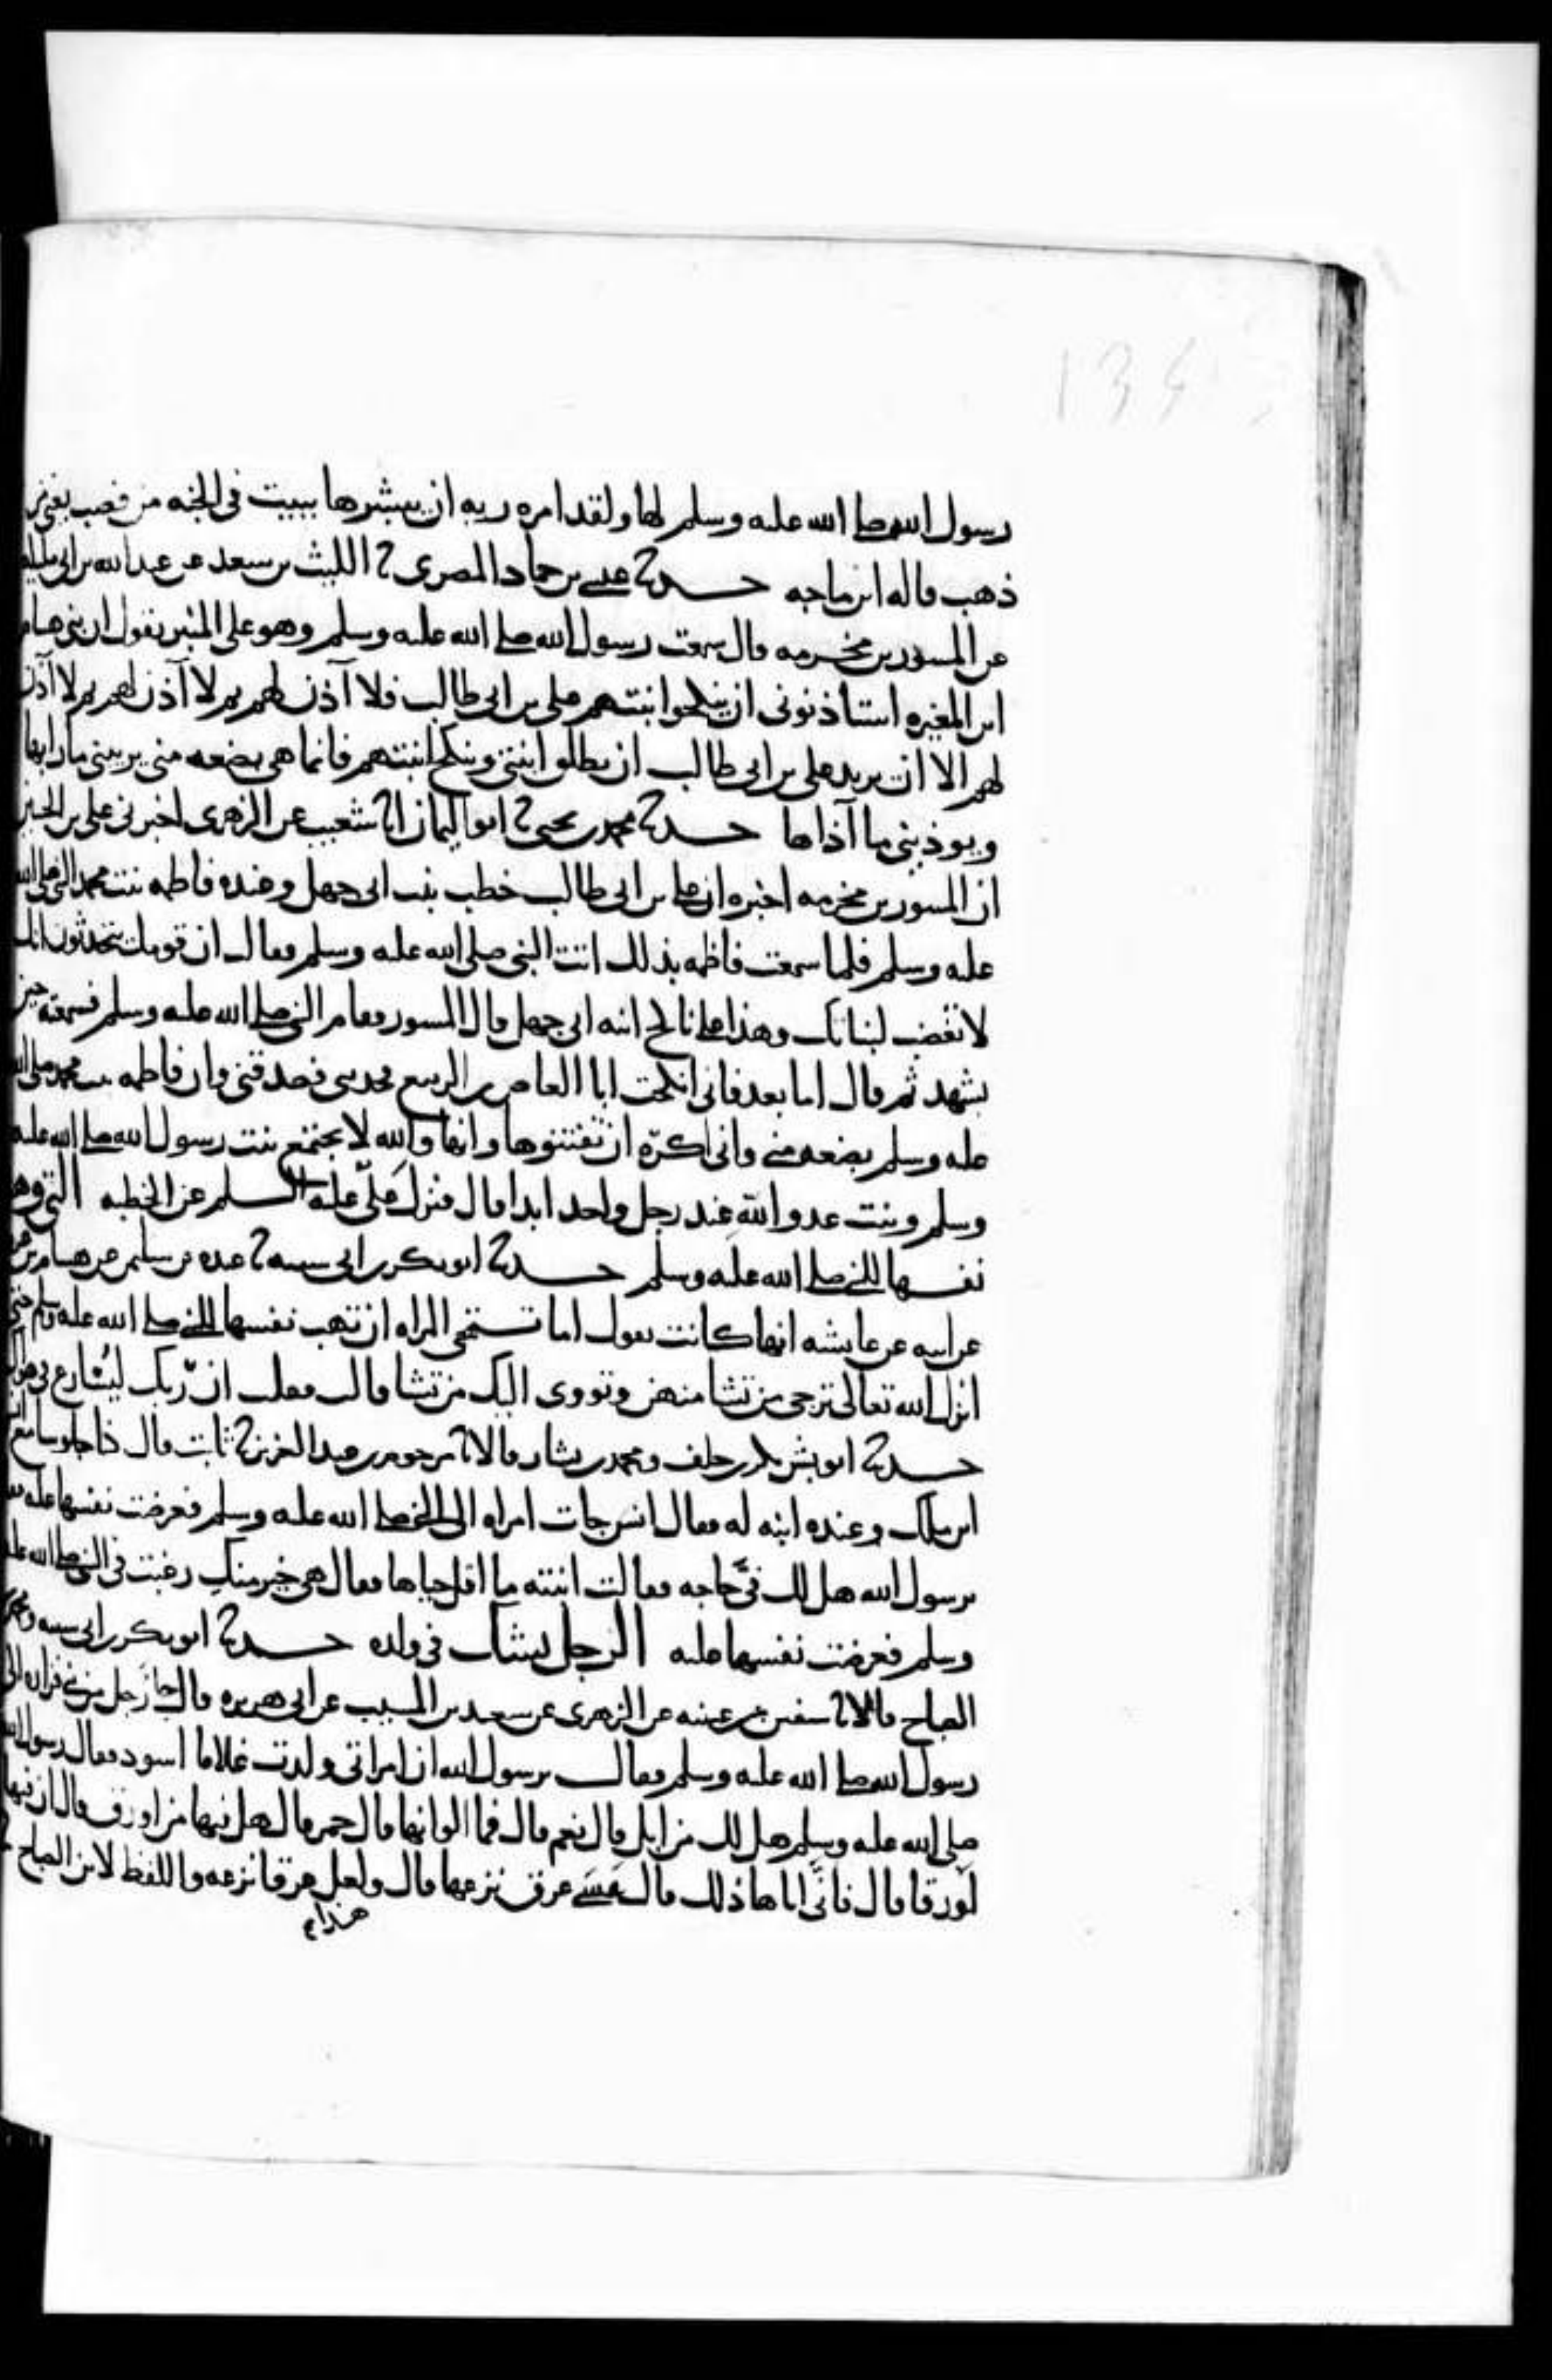 134
رسول الله صلى الله عليه وسلم لها ولقد امره ربه ان يبشرها ببيت في الجنه من قصب يعني من
ذهب قاله ابن ماجه حدثنا عيسى بن حماد المصري ثنا الليث بن سعد عن عبد الله بن ابي مليكه
عن المسور بن مخرمه قال سمعت رسول الله صلى الله عليه وسلم وهو على المنبر يقول ان بني هشام
ابن المغيره استاذنوني ان ينكحوا ابنتهم علي بن ابي طالب فلا آذن لهم ثم لا آذن لهم ثم لا آذن
لهم الا ان يريد علي بن ابي طالب ان يطلق ابنتي وينكح ابنتهم فانما هي بضعه مني يريبني ما رابها
ويوذيني ما آذاها حدثنا محمد بن يحيى ثنا ابو اليمان انا شعيب عن الزهري اخبرني علي بن الحسين
ان المسور بن مخرمه اخبره ان علي بن ابي طالب خطب بنت ابي جهل وعنده فاطمه بنت محمد النبي صلى الله
عليه وسلم فلما سمعت فاطمه بذلك اتت النبي صلى الله عليه وسلم فقال ان قومك يتحدثون انك
لا تغضب لبناتك وهذا علي ناكح ابنه ابي جهل قال المسور فقام النبي صلى الله عليه وسلم فسمعته حين
تشهد ثم قال اما بعد فاني انكحت ابا العاص بن الربيع فحدثني فصدقني وان فاطمه بنت محمد صلى الله
عليه وسلم بضعه مني واني اكره ان تفتنوها وانها والله لا تجتمع بنت رسول الله صلى الله عليه
وسلم وبنت عدو الله عند رجل واحد ابدا قال فنزل علي عليه السلم عن الخطبه التي وهبت
نفسها للنبي صلى الله عليه وسلم حدثنا ابو بكر بن ابي شيبه ثنا عبده بن سليمن عن هشام بن عروه
عن ابيه عن عايشه انها كانت تقول اما تستحي المراه ان تهب نفسها للنبي صلى الله عليه وسلم حتى
انزل الله تعالى ترجي من تشا منهن وتووي اليك من تشا قالت فقلت ان ربك ليسارع في هواك
حدثنا ابو بشر بكر بن خلف ومحمد بن بشار قالا ثنا مرحوم بن عبد العزيز ثنا ثابت قال كنا جلوسا مع انس
ابن ملك وعنده ابنه له فقال انس جات امراه الى النبي صلى الله عليه وسلم فعرضت نفسها عليه فقالت
يرسول الله هل لك في حاجه فقالت ابنته ما اقل حياها فقال هي خير منك رغبت في النبي صلى الله عليه
وسلم فعرضت نفسها عليه الرجل يشك في ولده حدثنا ابو بكر بن ابي شيبه ومحمد بن
الصباح قالا ثنا سفين بن عيينه عن الزهري عن سعيد بن المسيب عن ابي هريره قال جا رجل من بني فزاره الى
رسول الله صلى الله عليه وسلم فقال يرسول الله ان امراتي ولدت غلاما اسود فقال رسول الله
صلى الله عليه وسلم هل لك من ابل قال نعم قال فما الوانها قال حمر قال هل فيها من اورق قال ان فيها
لورقا قال فانى اتاها ذلك قال عسى عرق نزعها قال ولعل عرقا نزعه واللفظ لابن الصباح
هذا